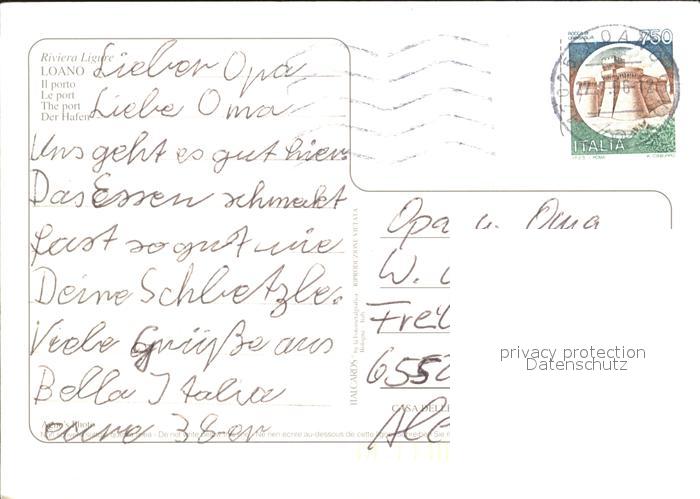 Riviera Ligure
LOANO
Il porto
Le port
The port
Der Hafen
Lieber Opa
Liebe Oma
Uns geht es gut hier.
Das Essen schmekt
fast so gut wie
Deine Schbetzle.
Viele Grüße aus
Bella Italia
eure 3 8er
ROCCA DI
750
ITALIA
I.P.Z.S. - ROMA
Opa u. Oma
W.
Frei
6552
Ale
ITALCARDS
RIPRODUZIONE VIETATA
CASA DELL
privacy protection
Datenschutz